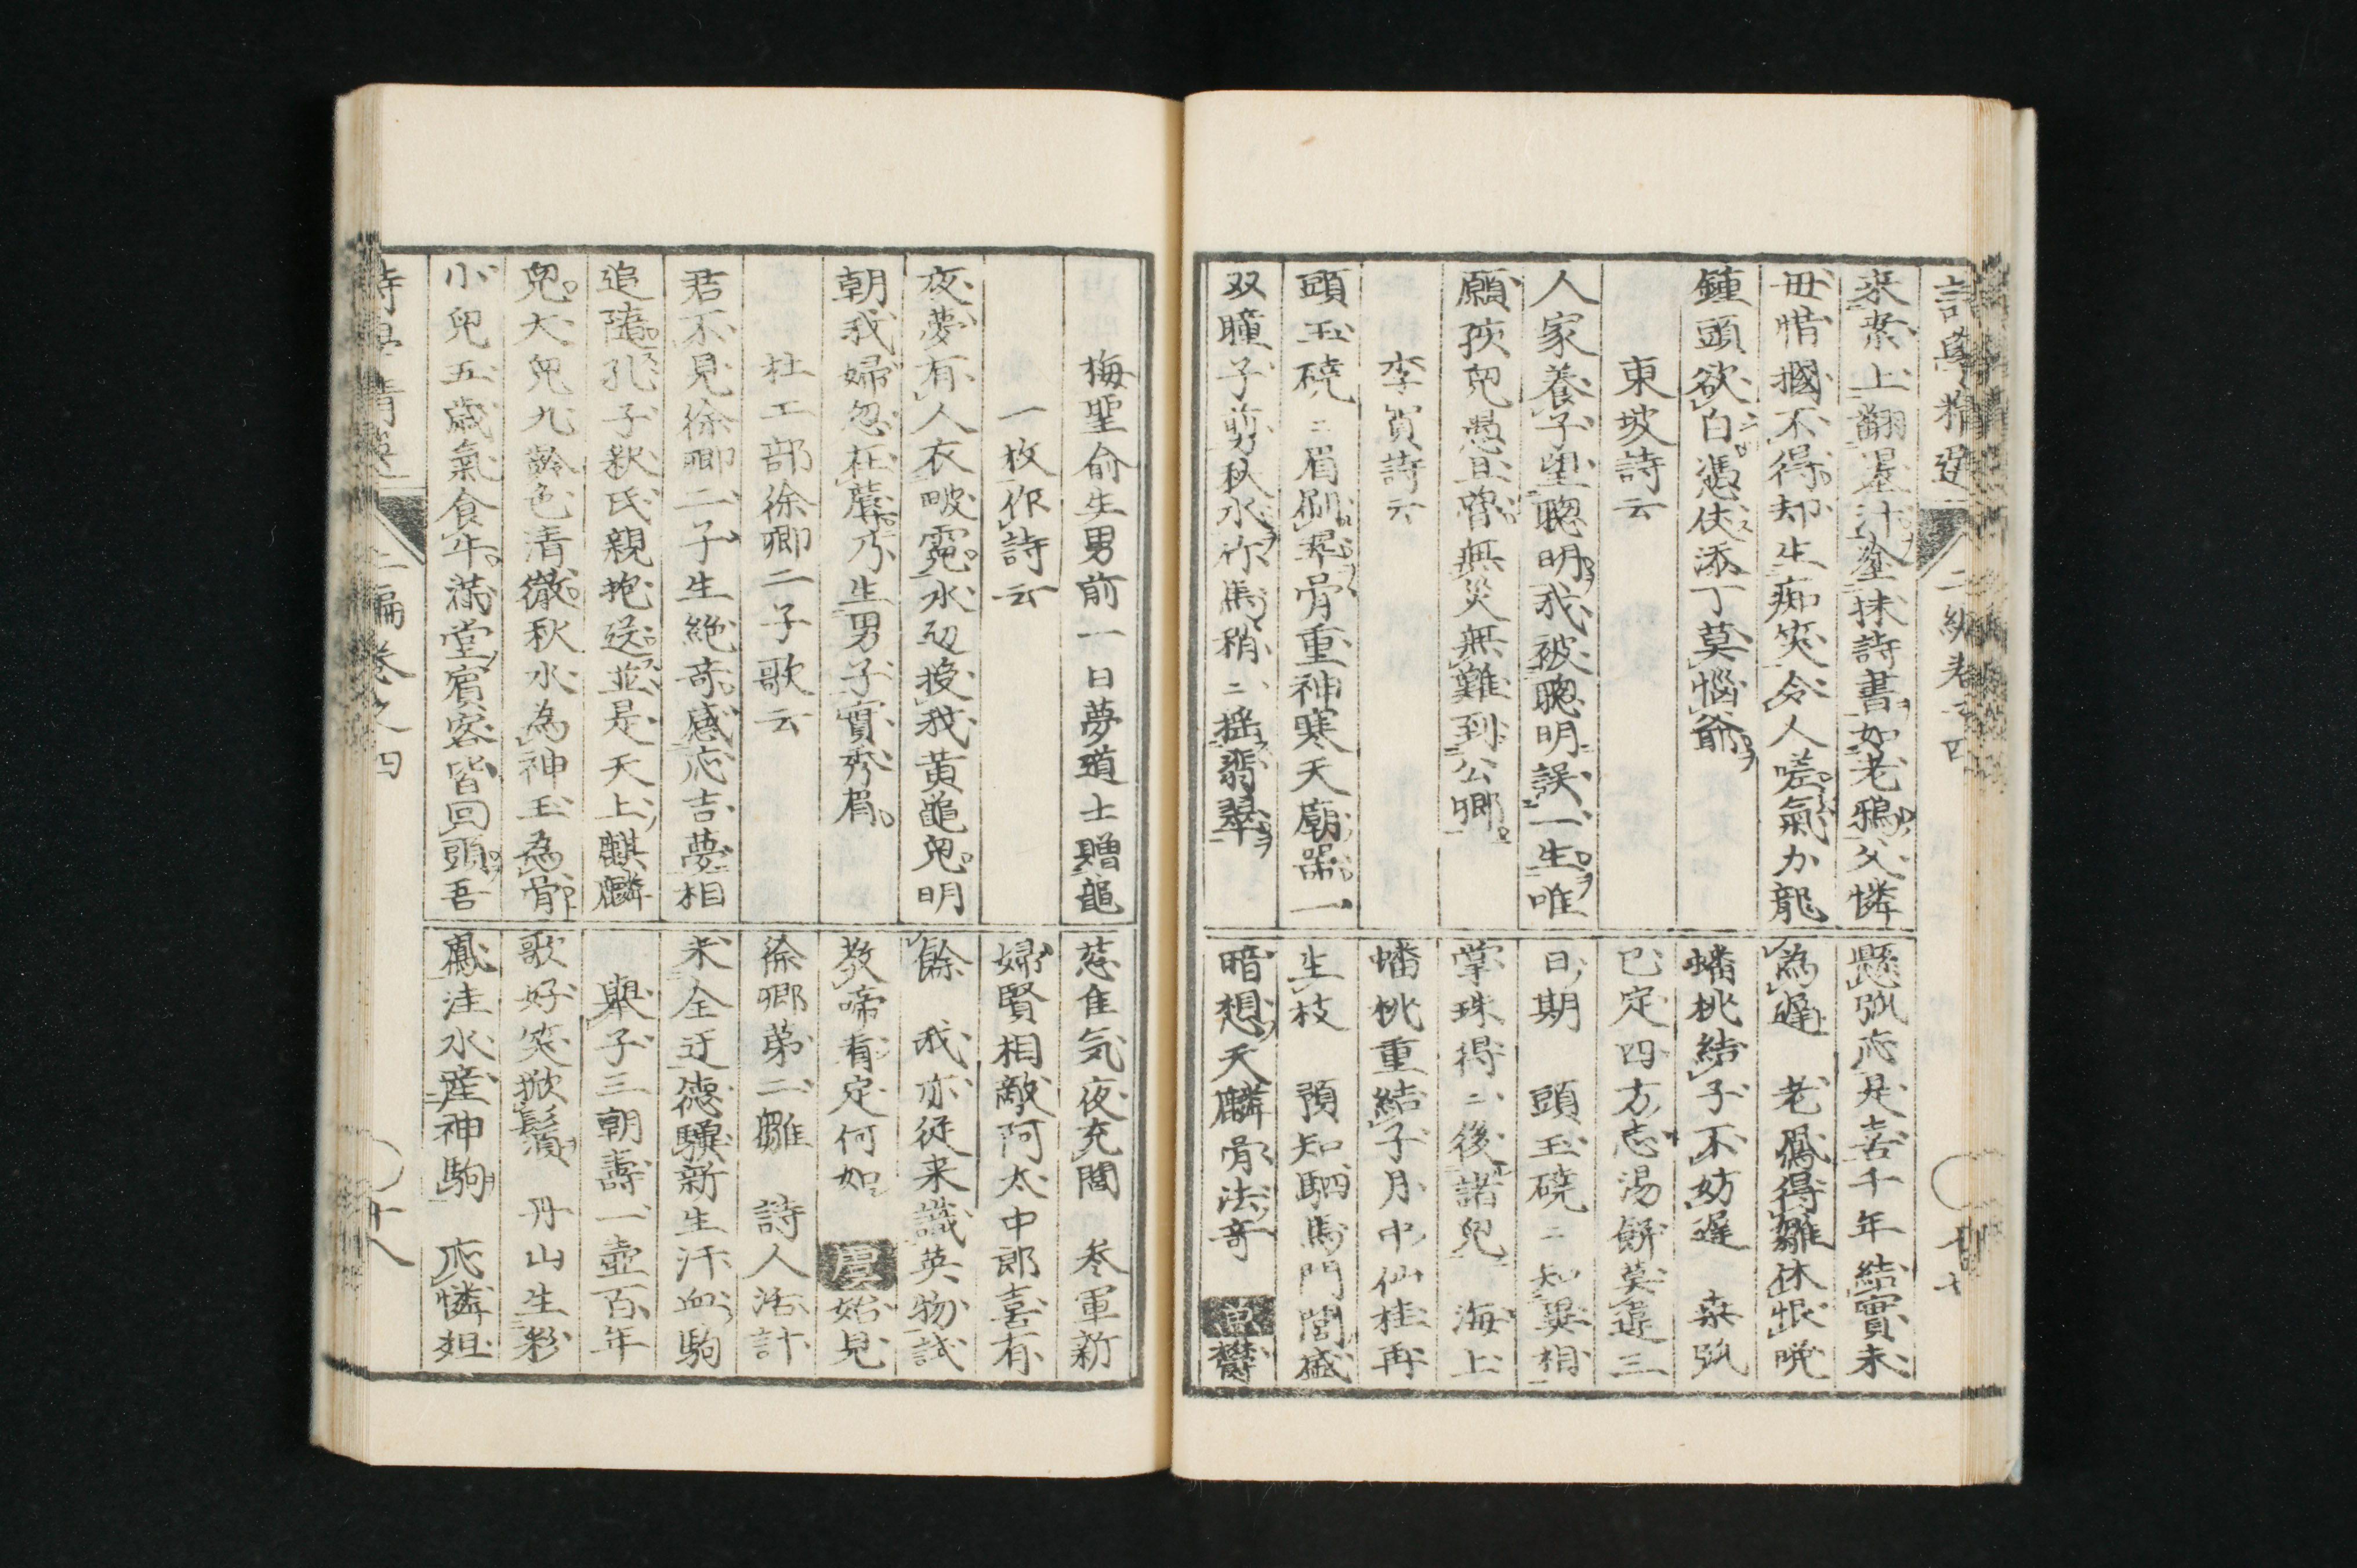 案上翻墨汁塗抹詩書如老鴉父憐
毋惜摑不得却生痴笑令人嗟氣力龍
鍾頭欲白憑仗添丁莫惱爺
東坡詩云
人家養子望聰明我被聰明誤一生唯
願孩兒愚且魯無災無難到公卿
李賀詩云
頭玉磽〻眉刷翠骨重神寒天廟器一
双瞳子剪秋水竹馬稍〻揺翡翠
懸弧志是喜千年結實未
為遲 老鳳得雛休恨晩
蟠桃結子不妨遲 桒弧
已定四方志湯餅莫違三
日期 頭玉磽〻知異相
掌珠得〻後諸兒 海上
蟠桃重結子月中仙桂再
生枝 預知駟馬門閭盛
暗想天麟骨法奇
梅聖俞生男前一日夢道士贈龍
一枚作詩云
夜夢有人衣帔霞水边授我黄龜兒明
朝我婦忽在蓐乃生男子實秀眉
杜工部徐卿二子歌云
君不見徐卿二子生絶奇感応吉夢相
追随孔子釈氏親抱送並是天上麒麟
兒大兒九齢色清徹秋水為神玉為骨
小兒五歳氣食牛満堂賓客皆回頭吾
葱隹気夜充閭 参軍新
婦賢相敵阿太中郎喜有
餘 我亦従来識英物試
教啼看定何如 始見
徐卿第二雛 詩人活計
未全迂徳驥新生汗血駒
與子三朝壽一壺百年
歌好笑掀鬚 丹山生彩
鳳洼水産神駒 応憐
二編巻之四
十八